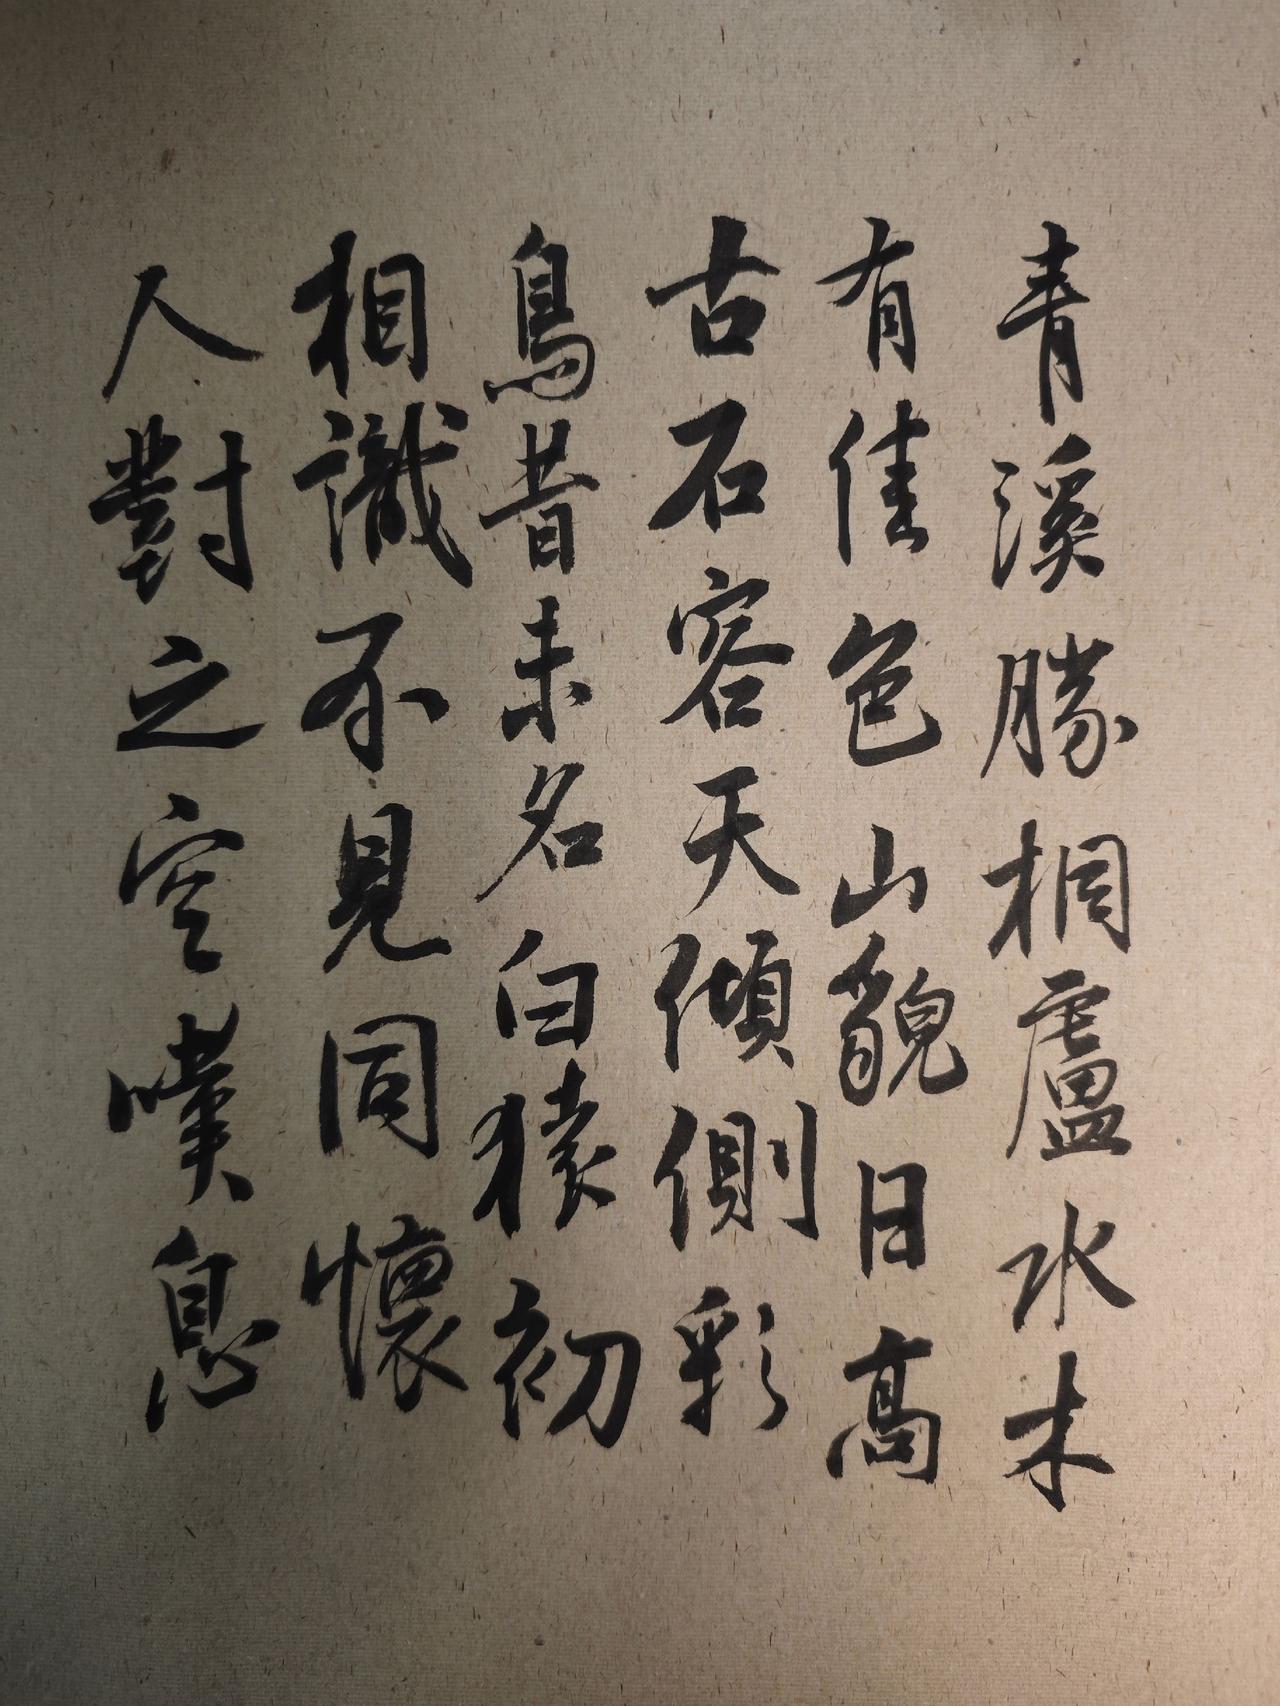 青溪勝桐廬水木
有佳色山貌日高
古石容天傾側彩
鳥昔未名白猿初
相識不見同懷
人對之空嘆息